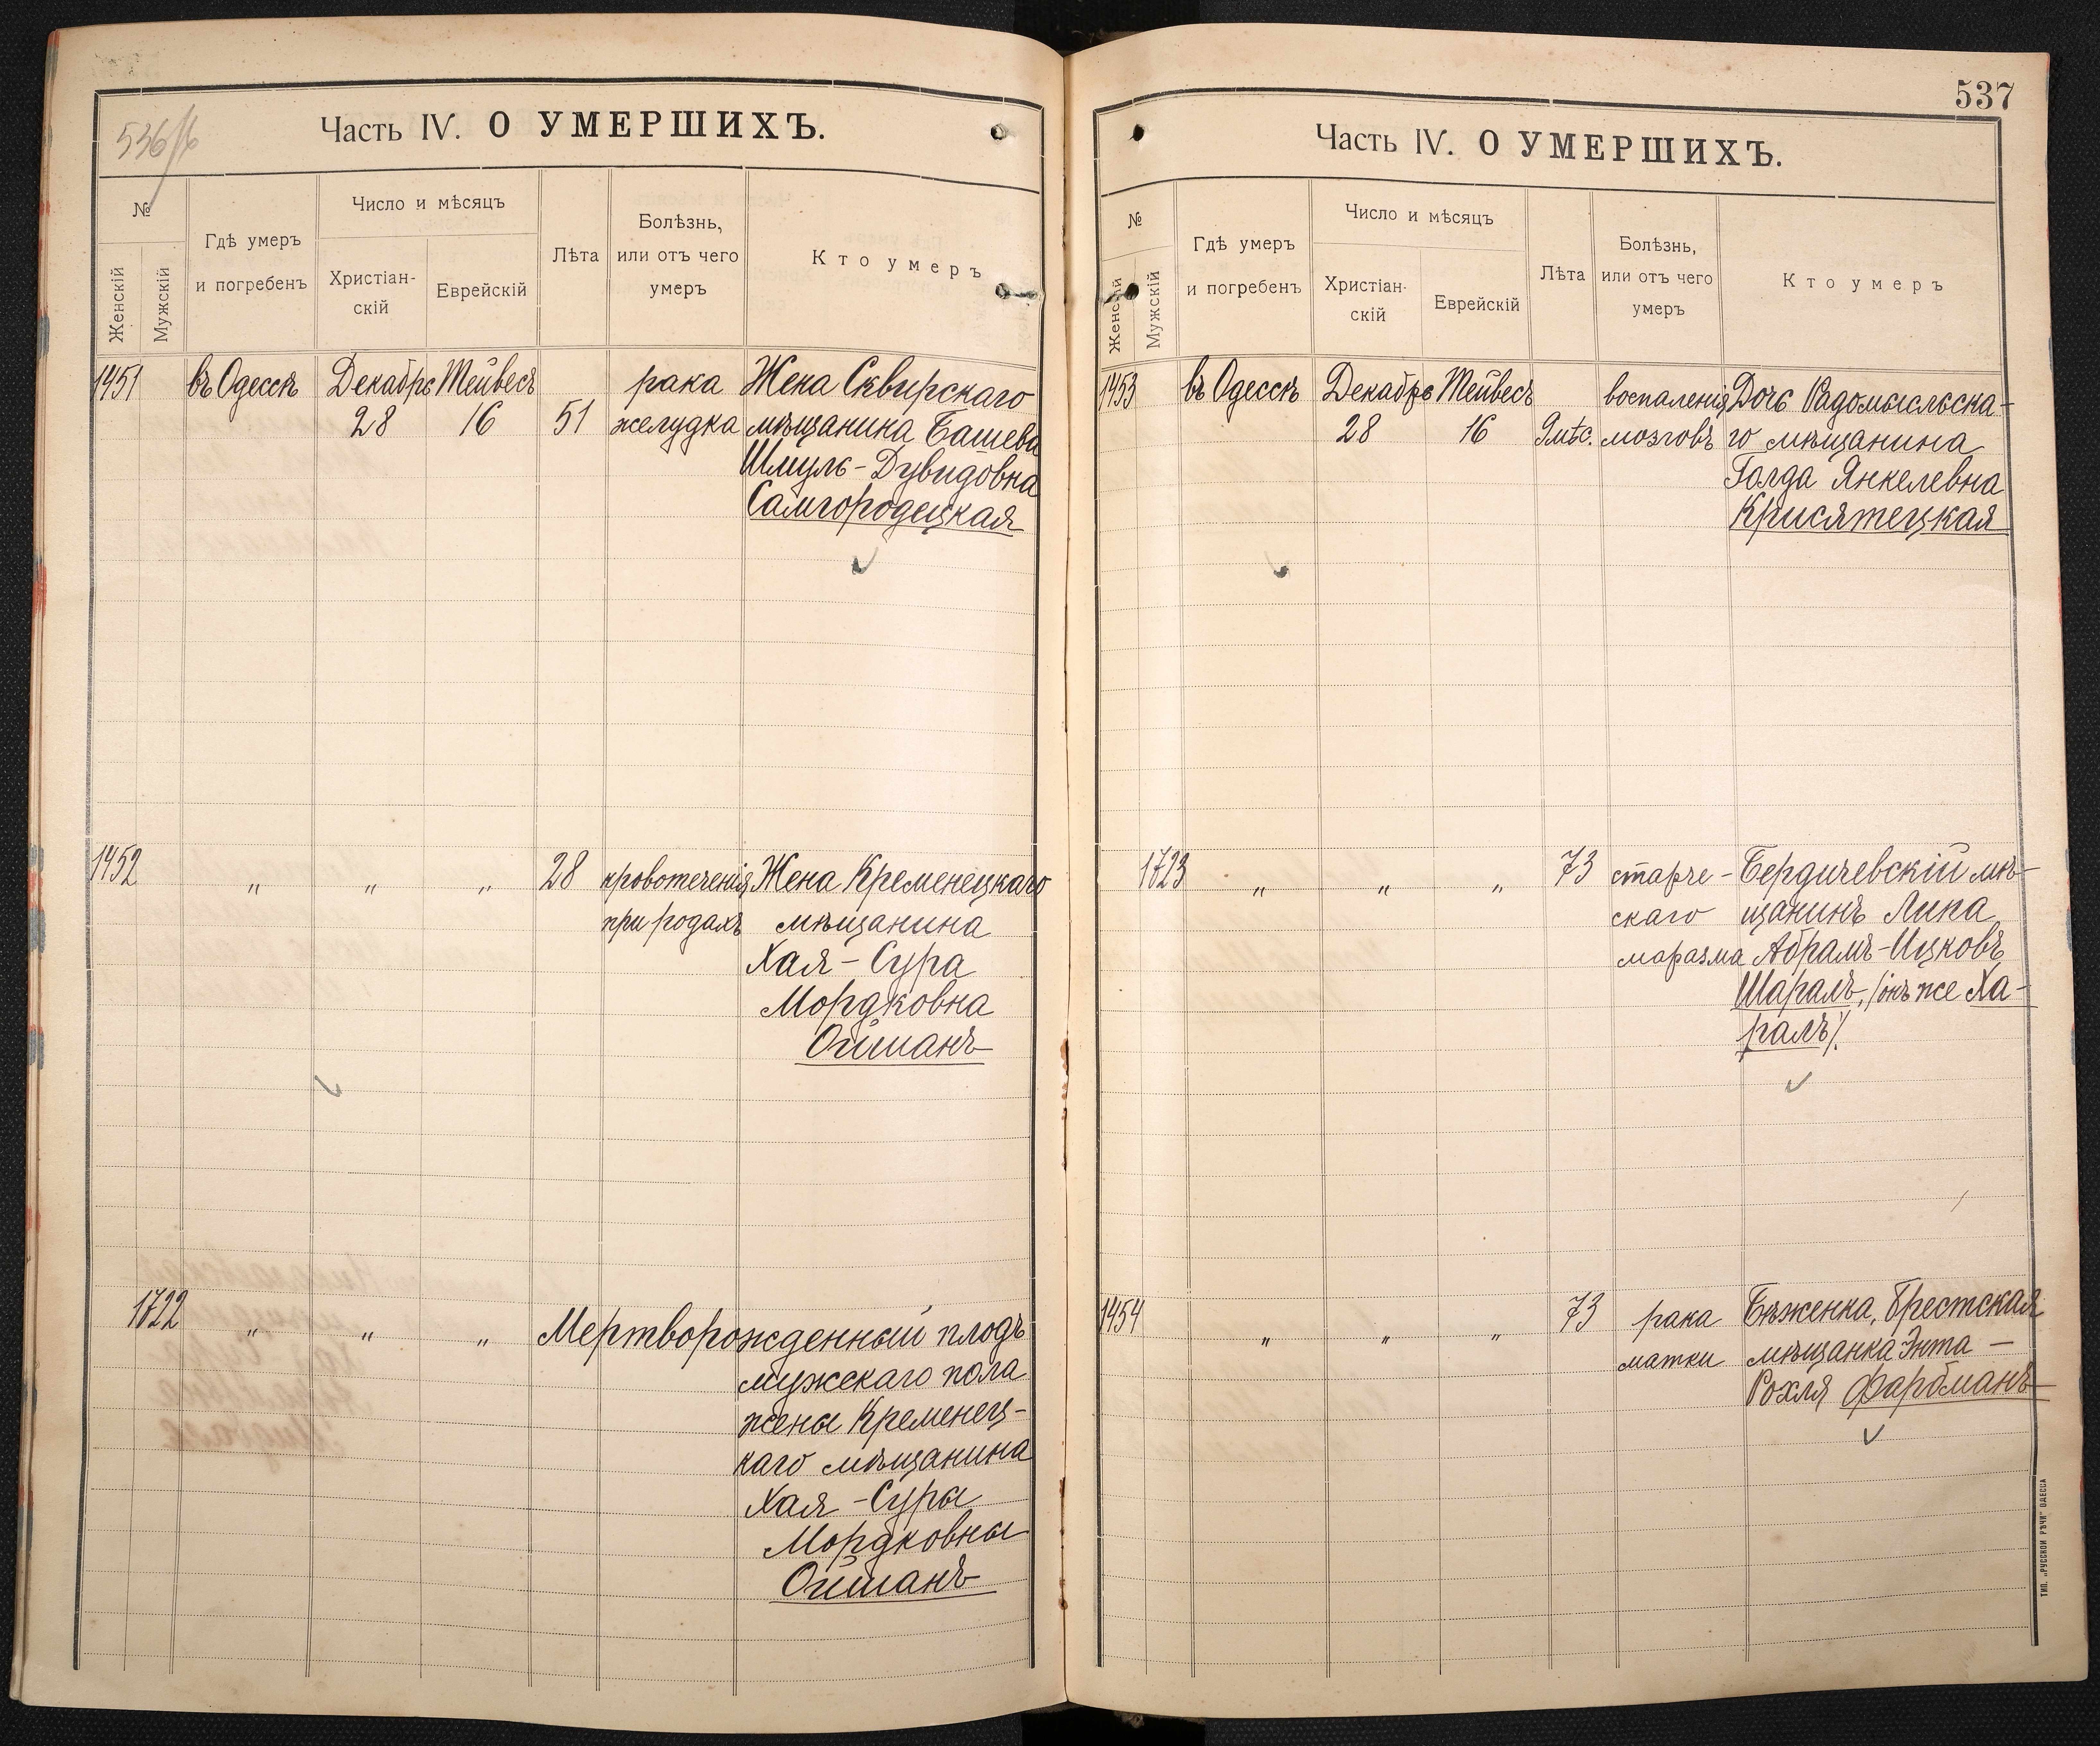 536/б
Часть IV. О УМЕРШИХЪ.
№
Женскій
Мужскій
Гдѣ умеръ
и погребенъ
Число и мѣсяцъ
Христіан-
скій
Еврейскій
Лѣта
Болѣзнь,
или отъ чего
умеръ
Кто умеръ
1451 въ Одессѣ Декабрь Тейвесъ рака Жена Сквирскаго
28 16 51 желудка мѣщанина Башева
Шмуль-Дувидовна
Самгородецкая
1452 „ „ „ 28 кровотеченія Жена Кременецкаго
при родахъ мѣщанина
Хая-Сура
Мордковна
Ойшанъ
1722 „ „ „ Мертворожденный плодъ
мужскаго пола
жены Кременец-
каго мѣщанина
Хая-Суры
Мордковны
Ойшанъ
537
Часть IV. О УМЕРШИХЪ.
№
Женскій
Мужскій
Гдѣ умеръ
и погребенъ
Число и мѣсяцъ
Христіан-
скій
Еврейскій
Лѣта
Болѣзнь,
или отъ чего
умеръ
Кто умеръ
1453 въ Одессѣ Декабрь Тейвесъ воспаленія Дочь Радомысльска-
28 16 9 мѣс. мозговъ го мѣщанина
Голда Янкелевна
Крисятецкая
1723 „ „ „ 73 старче- Бердичевскій мѣ-
скаго щанинъ Липа
маразма Абрамъ-Ицковъ
Шаралъ, (онъ же Ха-
ралъ).
1454 „ „ „ 73 рака Бѣженка, Брестская
матки мѣщанка Энта –
Рохля Фарбманъ
ТИП. „РУССКОЙ РѢЧИ“ ОДЕССА